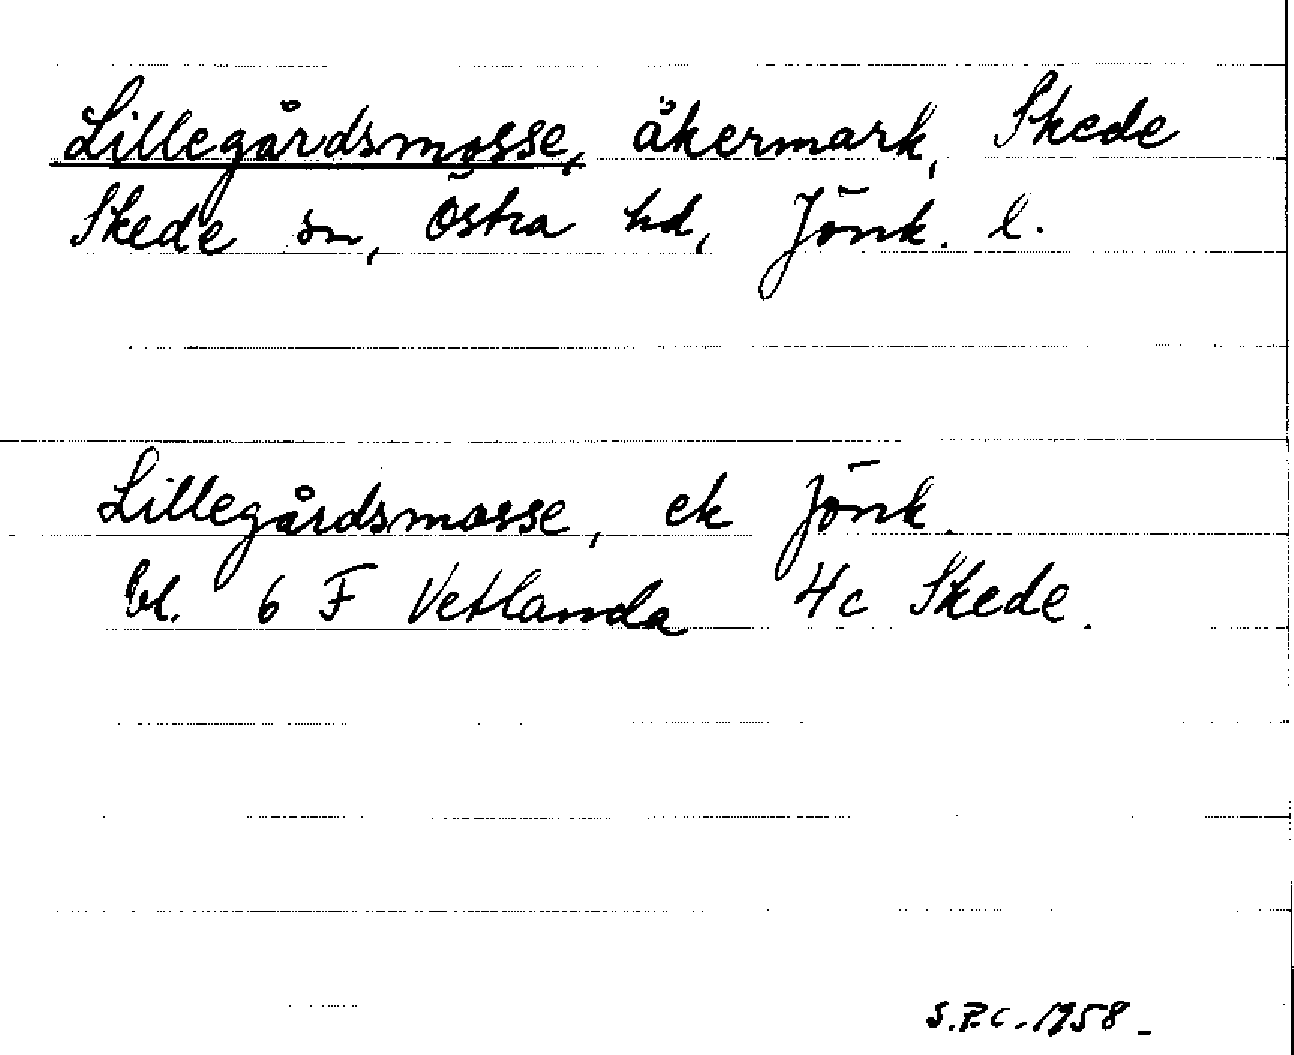 Lillegårdsmosse, åkermark, Skede
Skede sn, Östra hd, Jönk. l.
Lillegårdsmosse, ek Jönk.
bl. 6 F Vetlanda 4c Skede.
S.P.C. 1958